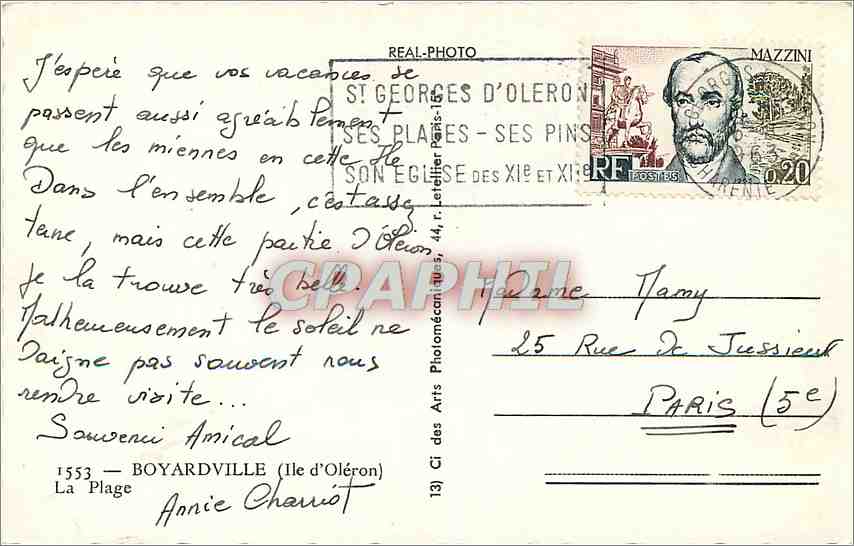 REAL-PHOTO
J'espère que vos vacances se
passent aussi agréablement
que les miennes en cette Ile
Dans l'ensemble, c'est assez
terne, mais cette partie d'Oléron
je la trouve très belle.
Malheureusement le soleil ne
daigne pas souvent nous
rendre visite...
Souvenir Amical
Annie Charriot
1553 — BOYARDVILLE (Ile d'Oléron)
La Plage
13) Ci des Arts Photomécaniques, 44, r. Letellier Paris-15e
ST GEORGES D'OLERON
SES PLAGES - SES PINS
SON EGLISE DES XIe ET XIIe
MAZZINI
RF
POSTES
0,20
Madame Mamy
25 Rue de Jussieu
PARIS (5e)
CPAPHIL